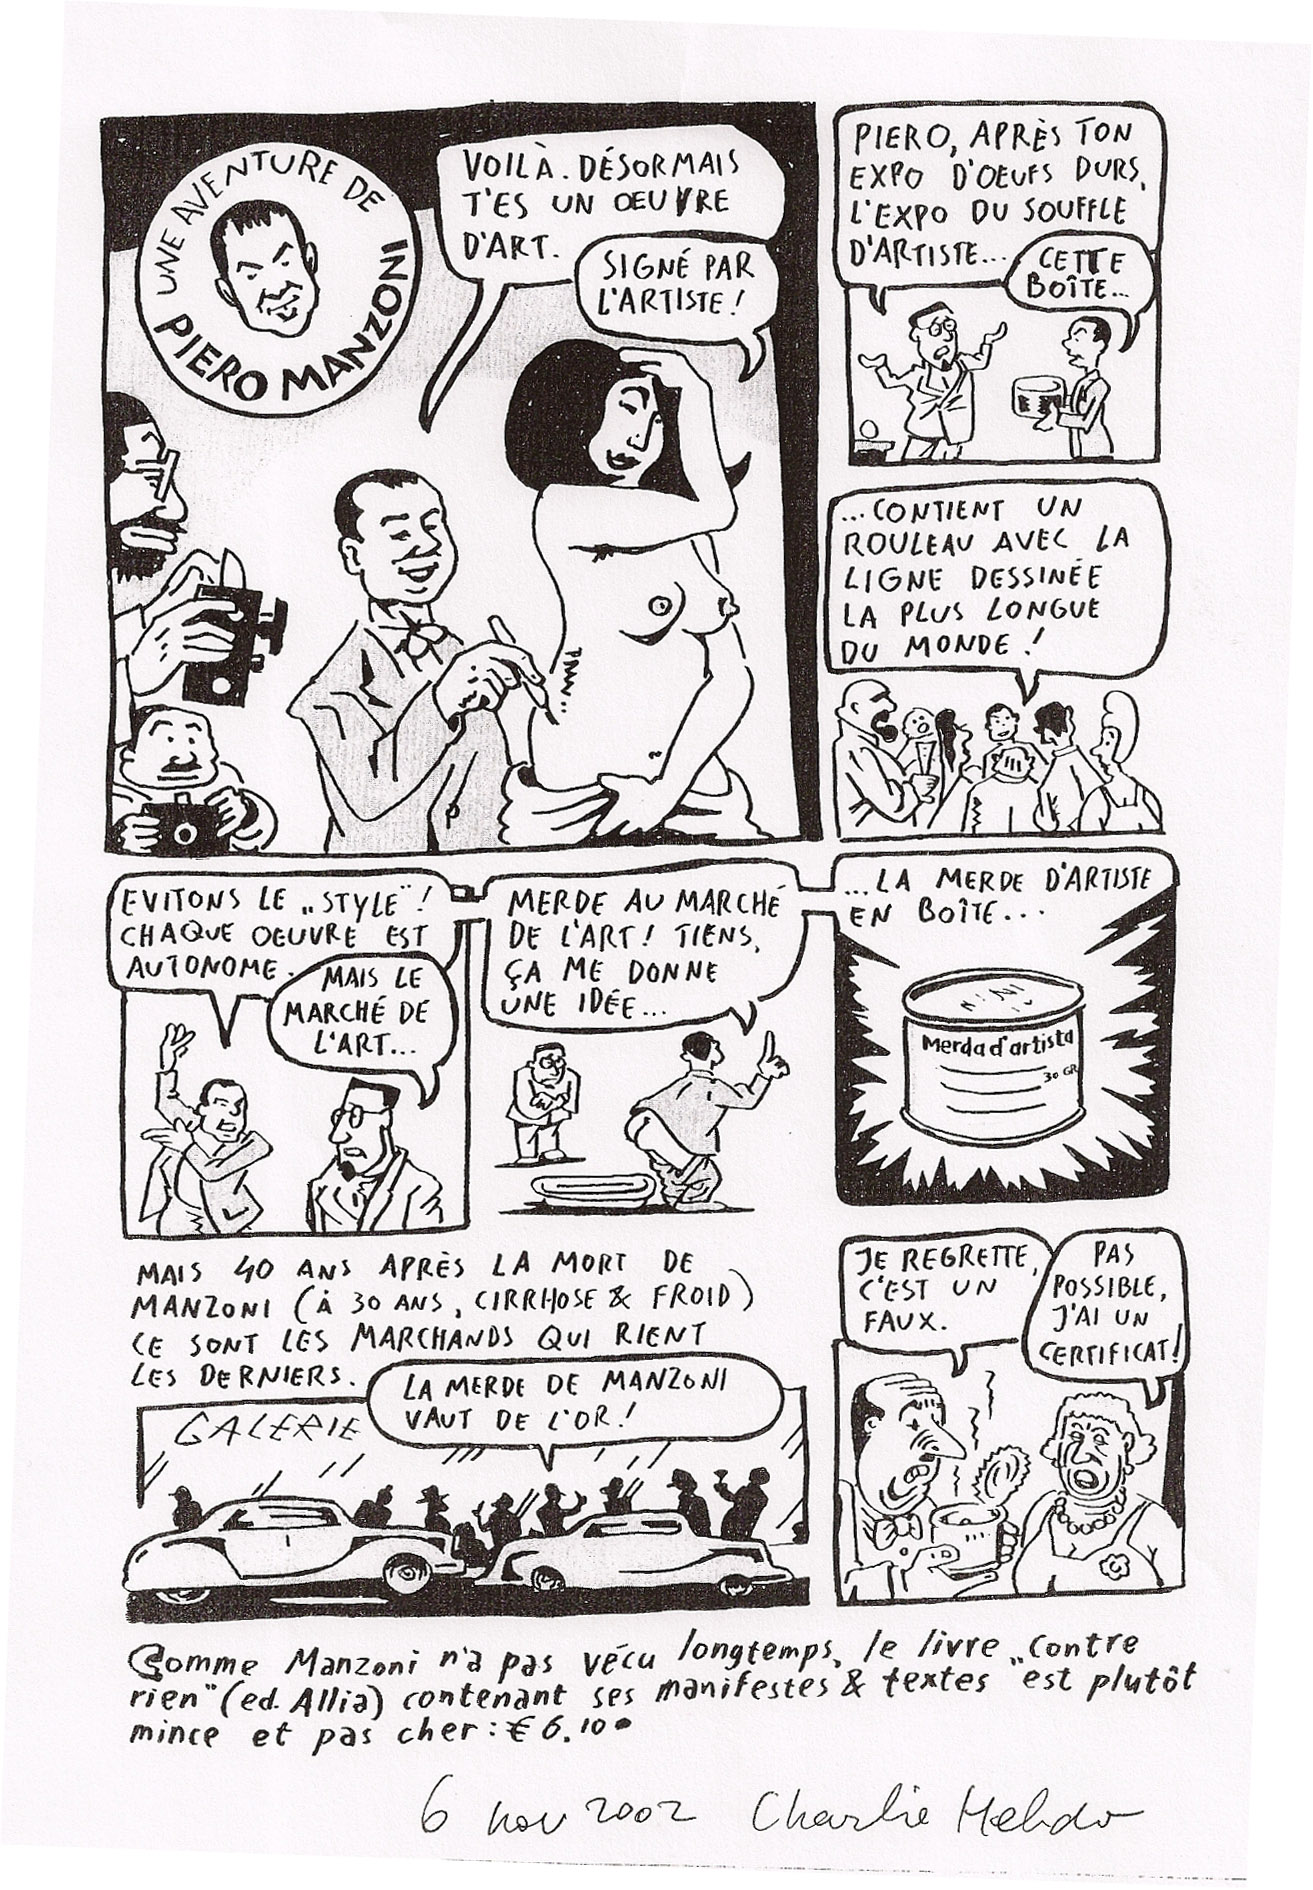 UNE AVENTURE DE
PIERO MANZONI
VOILÀ. DÉSORMAIS
T'ES UN OEUVRE
D'ART.
SIGNÉ PAR
L'ARTISTE!
PIERO, APRÈS TON
EXPO D'OEUFS DURS,
L'EXPO DU SOUFFLE
D'ARTISTE...
CETTE
BOÎTE...
...CONTIENT UN
ROULEAU AVEC LA
LIGNE DESSINÉE
LA PLUS LONGUE
DU MONDE!
EVITONS LE „STYLE"!
CHAQUE OEUVRE EST
AUTONOME.
MAIS LE
MARCHÉ DE
L'ART...
MERDE AU MARCHÉ
DE L'ART! TIENS,
ÇA ME DONNE
UNE IDÉE...
...LA MERDE D'ARTISTE
EN BOÎTE...
Merda d'artista
30 GR
MAIS 40 ANS APRÈS LA MORT DE
MANZONI (À 30 ANS, CIRRHOSE & FROID)
CE SONT LES MARCHANDS QUI RIENT
LES DERNIERS.
LA MERDE DE MANZONI
VAUT DE L'OR!
GALERIE
JE REGRETTE,
C'EST UN
FAUX.
PAS
POSSIBLE,
J'AI UN
CERTIFICAT!
Comme Manzoni n'a pas vécu longtemps, le livre „contre
rien" (ed. Allia) contenant ses manifestes & textes est plutôt
mince et pas cher: € 6.10.
6 nov 2002 Charlie Hebdo